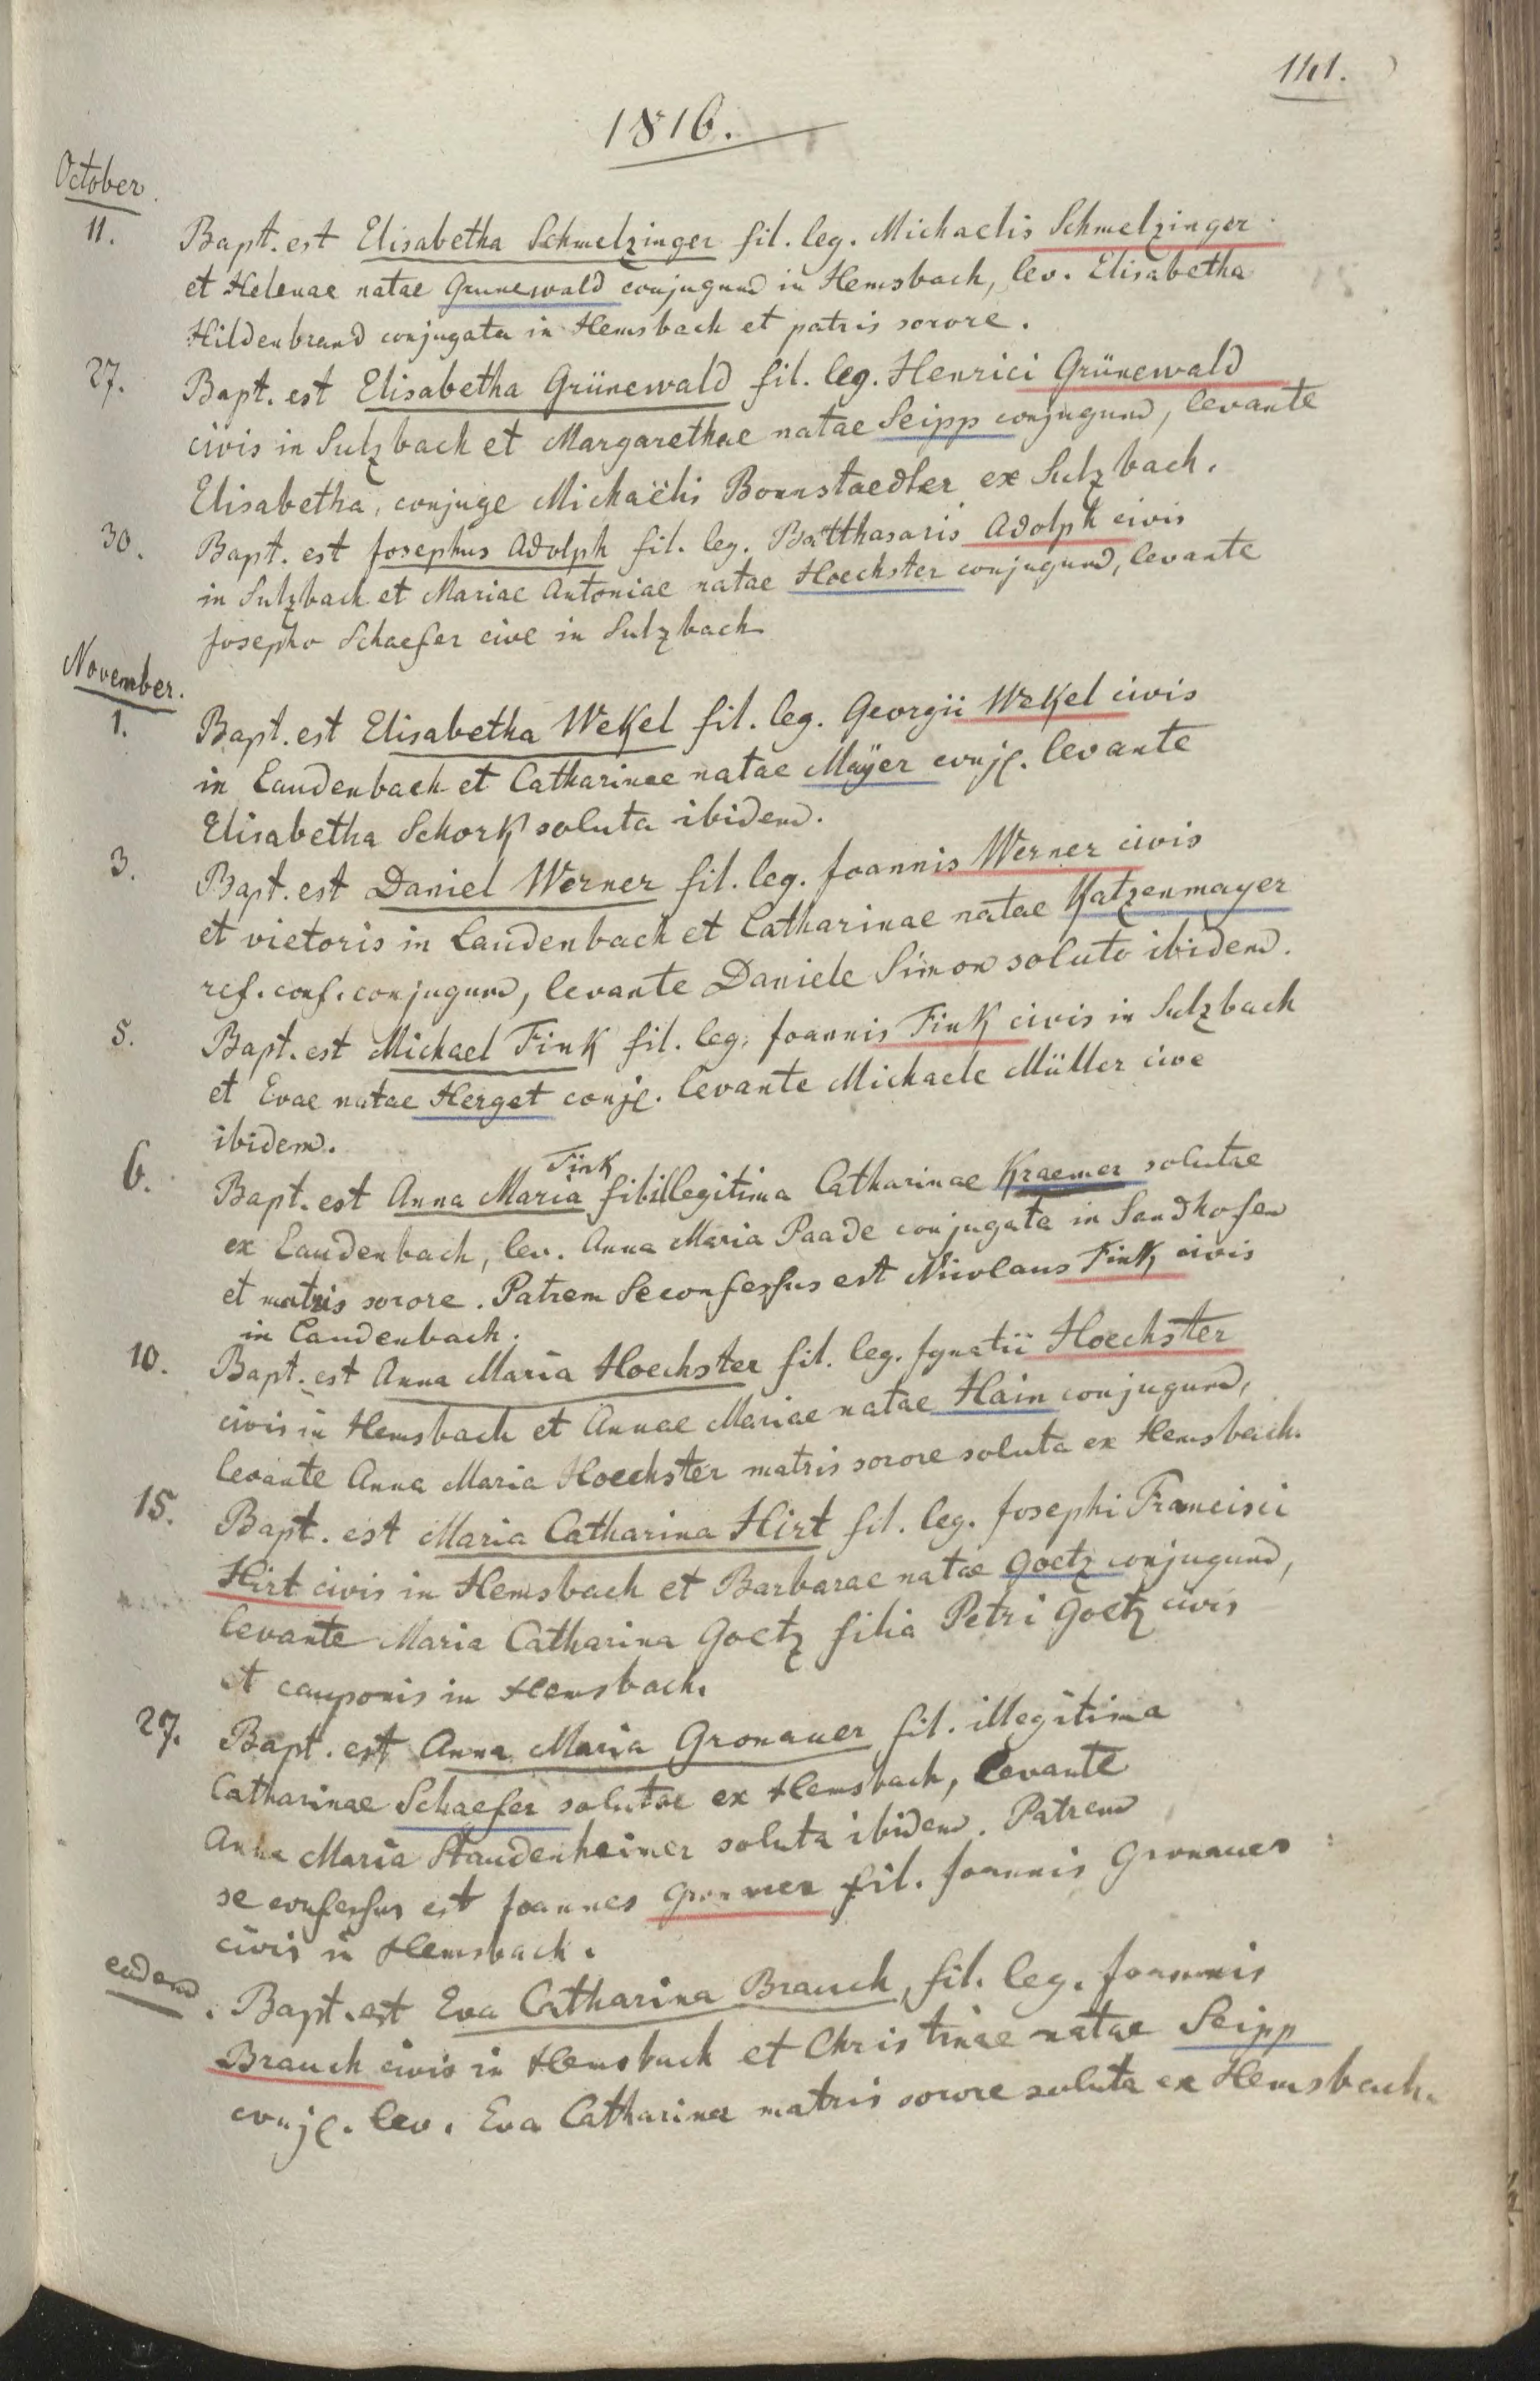 141.
1816.
October.
11. Bapt. est Elisabetha Schmelzinger fil. leg. Michaelis Schmelzinger
et Helenae natae Grunewald conjugum in Hemsbach, lev. Elisabetha
Hildenbrand conjugata in Hemsbach et patris sorore.
27. Bapt. est Elisabetha Grünewald fil. leg. Henrici Grünewald
civis in Sulzbach et Margarethae natae Seipp conjugum, levante
Elisabetha, conjuge Michaëlis Bonnstaedter ex Sulzbach.
30. Bapt. est Josephus Adolph fil. leg. Balthasaris Adolph civis
in Sulzbach et Mariae Antoniae natae Hoechster conjugum, levante
Josepho Schaefer cive in Sulzbach
November.
1. Bapt. est Elisabetha Wekel fil. leg. Georgii Wekel civis
in Laudenbach et Catharinae natae Mayer conj. levante
Elisabetha Schork soluta ibidem.
3. Bapt. est Daniel Werner fil. leg. Joannis Werner civis
et vietoris in Laudenbach et Catharinae natae Katzenmayer
ref. conf. conjugum, levante Daniele Simon soluto ibidem.
5. Bapt. est Michael Fink fil. leg. Joannis Fink civis in Sulzbach
et Evae natae Herget conj. levante Michaele Müller cive
ibidem.
Fink
6. Bapt. est Anna Maria fil. illegitima Catharinae Kraemer solutae
ex Laudenbach, lev. Anna Maria Paade conjugata in Sandhofen
et matris sorore. Patrem Se confessus est Nicolaus Fink civis
in Laudenbach.
10. Bapt. est Anna Maria Hoechster fil. leg. Ignatii Hoechster
civis in Hemsbach et Annae Mariae natae Hain conjugum,
levante Anna Maria Hoechster matris sorore soluta ex Hemsbach.
15. Bapt. est Maria Catharina Hirt fil. leg. Josephi Francisci
Hirt civis in Hemsbach et Barbarae natae Goetz conjugum,
levante Maria Catharina Goetz filia Petri Goetz civis
et cauponis in Hemsbach.
27. Bapt. est Anna Maria Gronauer fil. illegitima
Catharinae Schaefer solutae ex Hemsbach, levante
Anna Maria Staudenheimer soluta ibidem. Patrem
se confessus est Joannes Gronauer fil. Joannis Gronauer
civis in Hemsbach.
eadem. Bapt. est Eva Catharina Brauch, fil. leg. Joannis
Brauch civis in Hemsbach et Christinae natae Seipp
conj. lev. Eva Catharina matris sorore soluta ex Hemsbach.